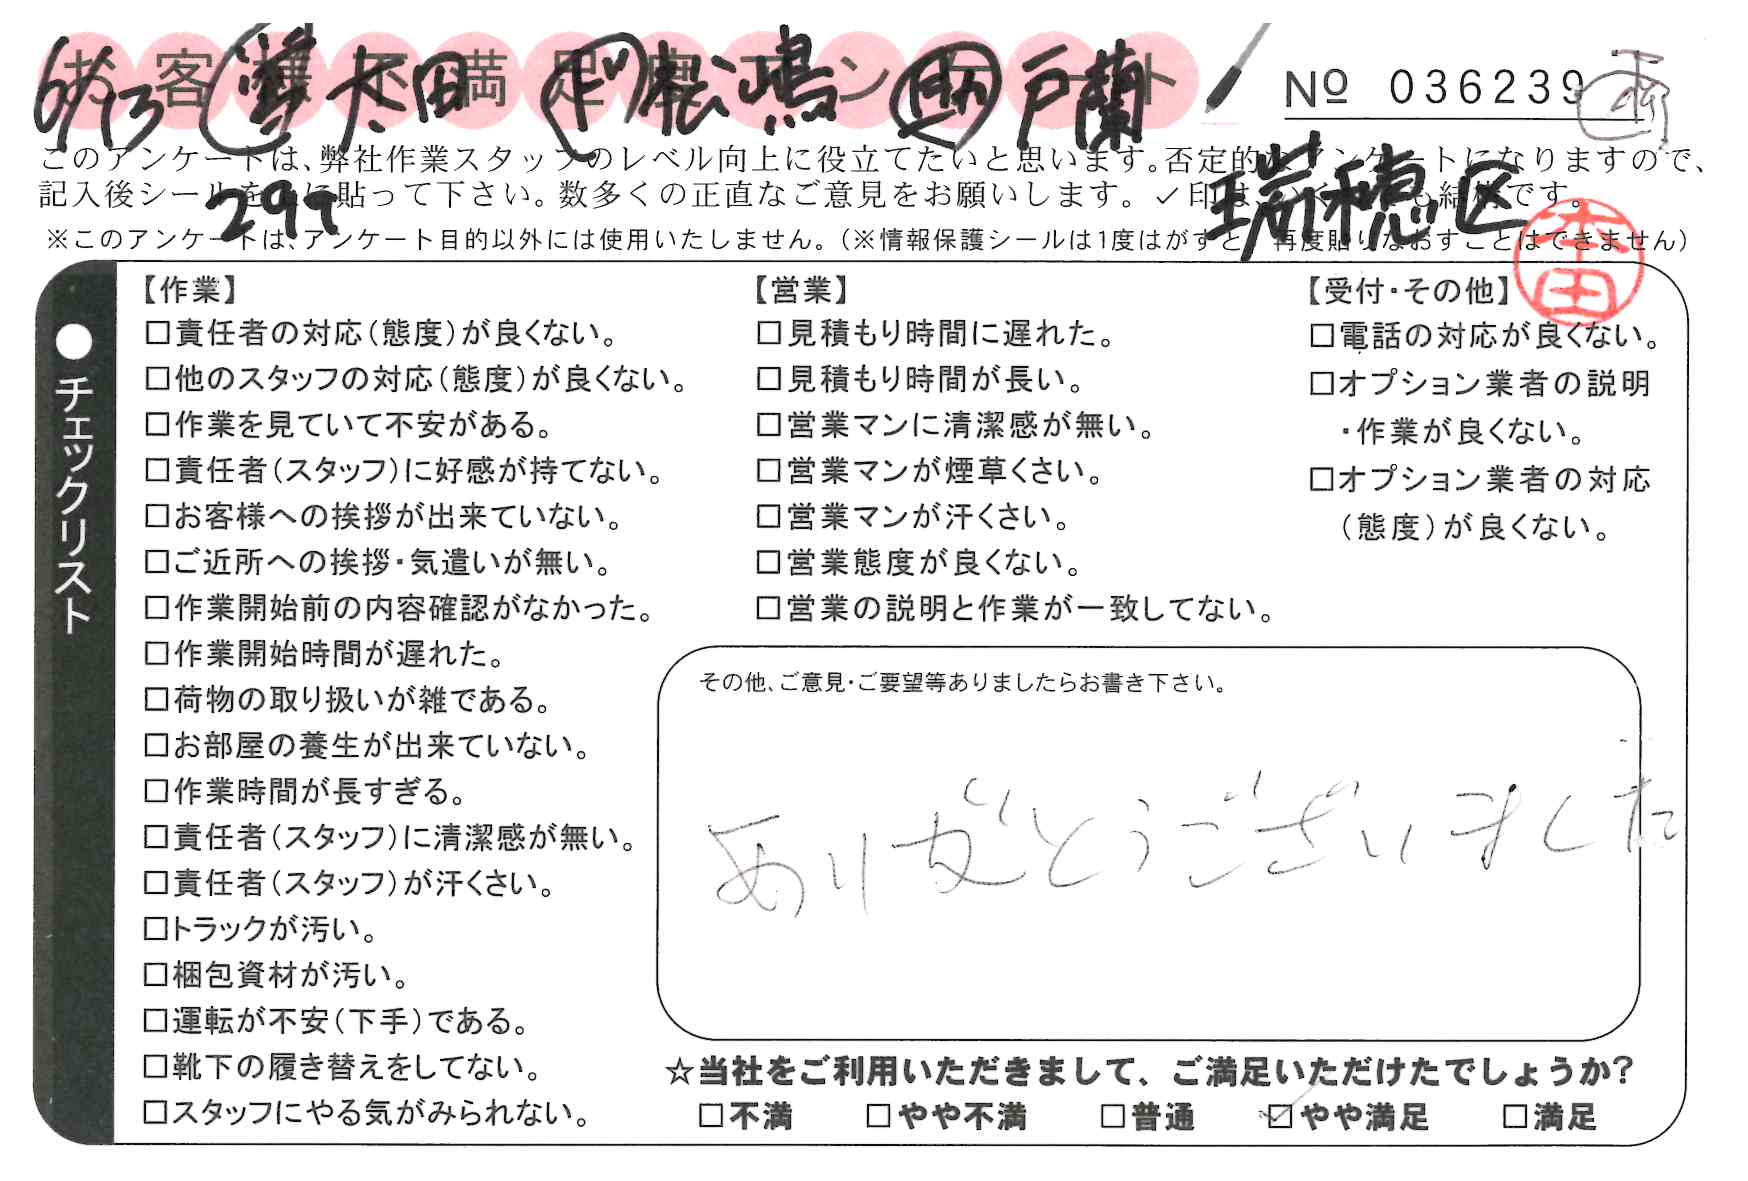 お客様不満足度アンケート
6/13 太田 松鴻 戸蘭
№ 036239
このアンケートは、弊社作業スタッフのレベル向上に役立てたいと思います。否定的なアンケートになりますので、
記入後シールを上に貼って下さい。数多くの正直なご意見をお願いします。✓印は、いくつでも結構です。
瑞穂区
※このアンケートは、アンケート目的以外には使用いたしません。（※情報保護シールは1度はがすと、再度貼りなおすことはできません）
本田
●チェックリスト
【作業】
□責任者の対応（態度）が良くない。
□他のスタッフの対応（態度）が良くない。
□作業を見ていて不安がある。
□責任者（スタッフ）に好感が持てない。
□お客様への挨拶が出来ていない。
□ご近所への挨拶・気遣いが無い。
□作業開始前の内容確認がなかった。
□作業開始時間が遅れた。
□荷物の取り扱いが雑である。
□お部屋の養生が出来ていない。
□作業時間が長すぎる。
□責任者（スタッフ）に清潔感が無い。
□責任者（スタッフ）が汗くさい。
□トラックが汚い。
□梱包資材が汚い。
□運転が不安（下手）である。
□靴下の履き替えをしてない。
□スタッフにやる気がみられない。
【営業】
□見積もり時間に遅れた。
□見積もり時間が長い。
□営業マンに清潔感が無い。
□営業マンが煙草くさい。
□営業マンが汗くさい。
□営業態度が良くない。
□営業の説明と作業が一致してない。
【受付・その他】
□電話の対応が良くない。
□オプション業者の説明
・作業が良くない。
□オプション業者の対応
（態度）が良くない。
その他、ご意見・ご要望等ありましたらお書き下さい。
ありがとうございました
☆当社をご利用いただきまして、ご満足いただけたでしょうか?
□不満 □やや不満 □普通 ☑やや満足 □満足